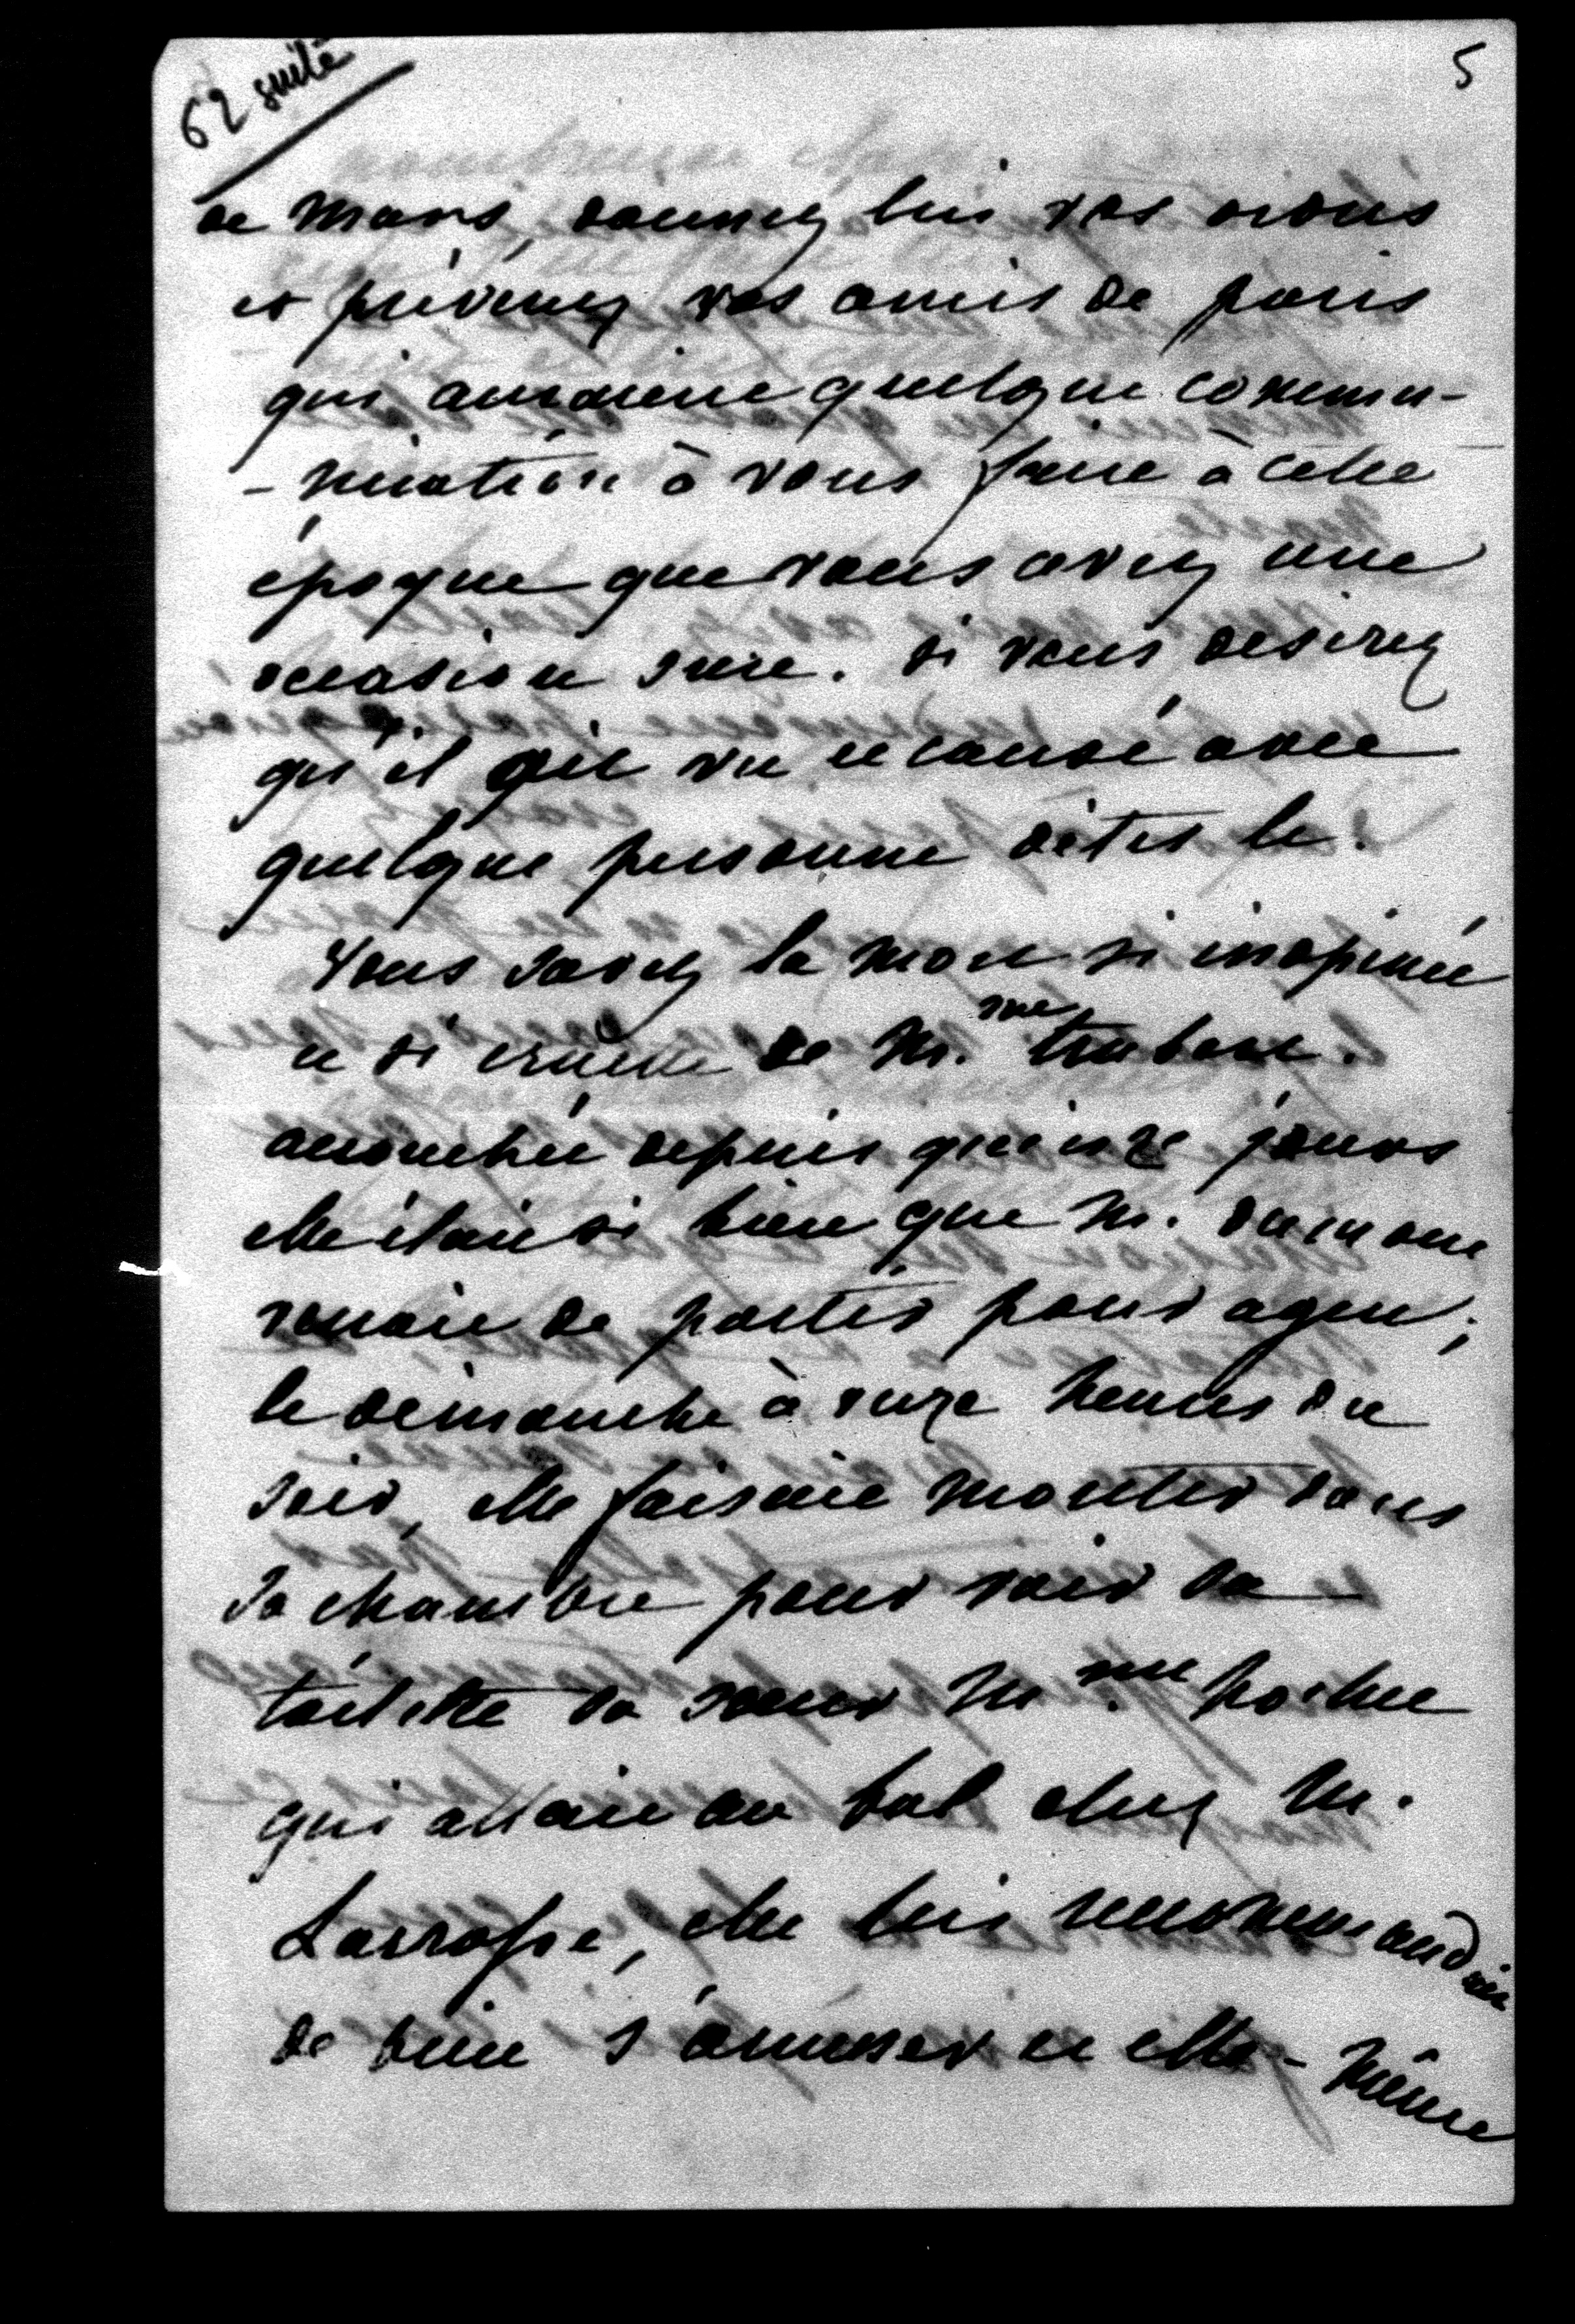 62 suite
5
de Mars, donnez lui vos
et prévenez vos amis de paris
qui auraient quelque commu-
-nication à vous faire à cette
époque que vous avez une
occasion sure. si vous desirez
qu'il ait vu et causé avec
quelque personne dites le.
Vous savez la mort si inopinée
et si cruelle de M.me
accouchée depuis quinze jours
elle étair si bien que M. Dumont
venait de partir pour agen;
le dimanche à onze heures du
soir, elle faisait monter dans
sa chambre pour voir sa
toilette sa soeur M.me
qui allait au bal chez M.
elle lui recommandait
de bien s'amuser et elle-même